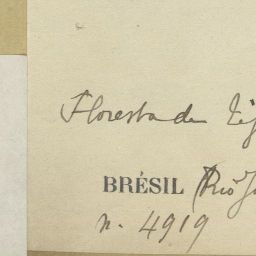 Floresta da Tij
BRÉSIL (Rio Ja
n. 4919